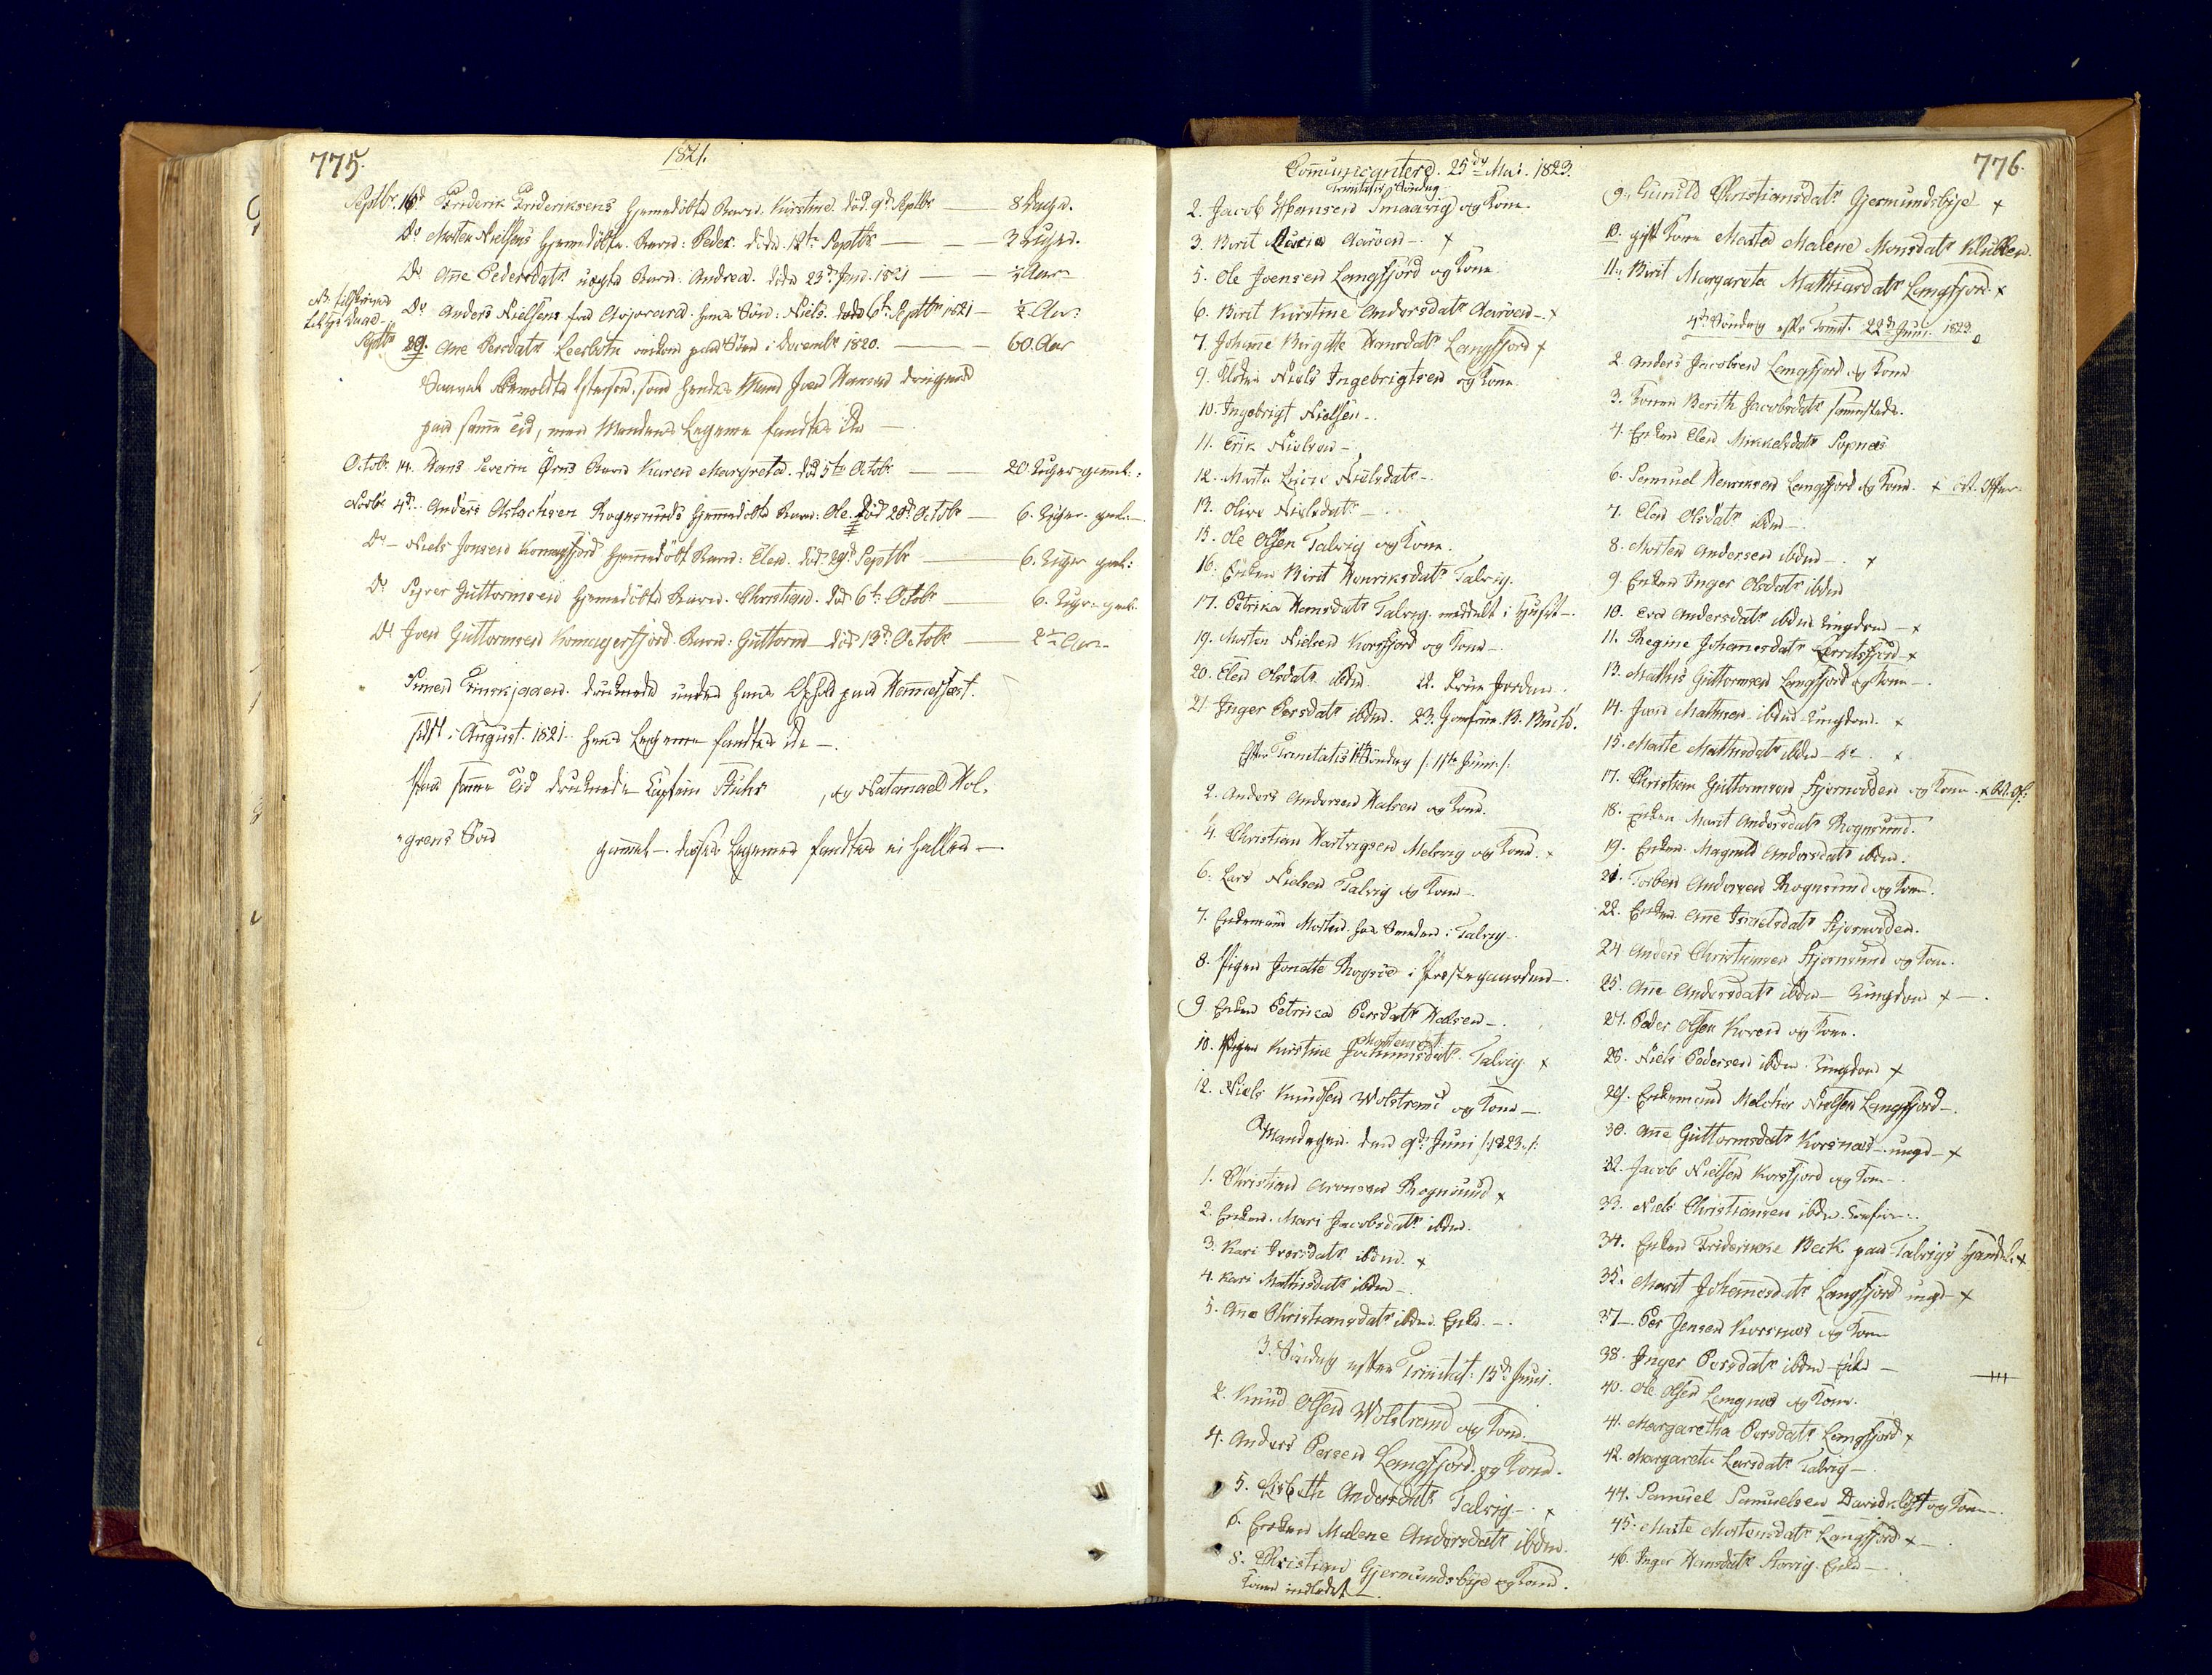 775.
1821.
Septbr. 16d Friderik Frideriksens hjemmedöbte Barn. Kirstine. död. 9d Septbr — 8 Dage.
Do Morten Nielsens hjemmedöbte Barn: Peder. döde. 12te Septbr — 3 Uger.
Do Anne Pedersdatr uægte Barn: Andrea. döde 23d Jun. 1821 — ½ Aar
Do Anders Nielsens fra hans Sön: Niels. 6te Septbr 1821 — ½ Aar
Septbr 29. Ane Persdatr Leerbotn omkom paa Söen i Decembr 1820. — 60. Aar
som hendes Mand Joen Hansen
paa samme Tid, men Mandens Legeme fandtes ikke —
Octobr. 14. Hans Severin Örns Barn Karen Margreta. död 5te Octobr — 20 Uger gaml:
Novbr 4d. Anders Aslachsen Rognsunds hjemmedöbte Barn: Ole. död 28d Octobr — 6. Uger. gml:
Do — Niels Jonsen Komagfjord hjemmedöbt Barn: Elen. död 29d Septbr — 6. Uger gml:
Do Gutormsen hjemmedöbte Barn. Christian. död 6te Octobr — 6. Uger gml:
Do Joen Guttormsen Komagerfjord Barn: Guttorm — död 13d Octobr — 2 Aar
Simen druknede under hans Ophold paa Hammerfest.
sidst i August. 1821. hans Legeme fandtes ikke —.
Paa samme Tid druknede , og Natanael Hol-
grens Sön gammel — disses Legemer fandtes ei heller —
776.
Communicantere. 25de Mai. 1823.
Trinitatis Söndag
2. Jacob Hansen Smaavig og Kone.
3. Berit Lucia Aaröen — x
5. Ole Joensen Langfjord og Kone.
6. Berit Kirstine Andersdatr Aaröen — x
7. Johanne Birgitte Hansdatr Langfjord x
9. Niels Ingebrigtsen og Kone.
10. Ingebrigt Nielsen —.
11. Erik Nielsen —
12. Marta Lucie Nielsdatr —
13. Olive Nielsdatr —.
15. Ole Olsen Talvig og Kone.
16. Enken Berit Henriksdatr Talvig.
17. Petrika Hansdatr Talvig. meddelt i Huset —
19. Morten Nielsen Korsfjord og Kone —
20. Elen Olsdatr ibdm. 22. Frue Jordan.
21. Inger Persdatr ibdm. 23. Jomfrue. B. Buch.
Efter Trinitatis 1ste Söndag /: 1ste Junii :/
2. Anders Andersen Halsen og Kone.
4. Christian Hartvigsen Melsvig og Kone. x
6. Lars Nielsen Talvig og Kone —
7. Enkemand Morten hos Smeden i Talvig.
8. Pigen Jonette Rogsöe i Præstegaarden —.
9. Enken Petrica Persdatr Halsen —.
10. Pigen Kirstine Mortensdt. Talvig x
12. Niels Knudsen Wolstrand og Kone —.
Mandagen den 9d Juni /: 1823. :/
1. Christian Aronsen Rognsund x
2. Enken. Mari Jacobsdatr ibdm.
3. Kari Iversdatr ibdm. x
4. Kari Mathisdatr ibdm —
5. Ane Christiansdatr ibdm. Enke —.
3. Söndag efter Trinitat: 15d Juni.
2. Knud Olsen Wolstrand og Kone.
4. Anders Persen Langfjord. og Kone.
5. Lisbeth Andersdatr Talvig — x
6. Enken Malene Andersdatr ibdm.
8. Christian Gjermundsbye og Kone.
Konen indledet —.
9. Gunild Christiansdatr Gjermundsbye x
10. gift Kone Marta Malene Monsdatr Klubben.
11. Berit Margareta Mathiasdatr Langfjord. x
4de Söndag efter Trinit. 22d Juni. 1823.
2. Anders Jacobsen Langfjord og Kone
3. Konen Berith Jacobsdatr sammesteds.
4. Enken Elen Mikkelsdatr Sopnæs
6. Samuel Henriksen Langfjord og Kone. x
7. Elen Olsdatr ibdm —.
8. Morten Andersen ibdm —. x
9. Enken Inger Olsdatr ibdm
10. Eva Andersdatr ibdm Ungdom — x
11. Regine Johannesdatr x
13. Mathis Guttormsen Langfjord og Kone —.
14. Iver Mathisen ibdm Ungdom. x
15. Marte Mathisdatr ibdm — do. x
17. Christian Guttormsen Stjernvoden og Kone.
18. Enken Marit Andersdatr Rognsund.
19. Enken. Magnild Andersdatr ibdm.
21. Torben Andersen Rognsund og Kone.
22. Enken. Ane Israelsdatr Stjernvoden.
24. Anders Christiansen Stjernsund og Kone.
25. Ane Andersdatr ibdm — Ungdom x —.
27. Peder Olsen Kveen og Kone.
28. Niels Pedersen ibdm. Ungdom x
29. Enkemand Melchior Nielsen Langfjord —.
30. Ane Guttormsdatr Korsnæs — ungd — x
32. Jacob Nielsen Korsfjord og Kone —.
33. Niels Christiansen ibdm.
34. Enken Friderikke Beck paa Talvigs Handel. x
35. Marit Johannesdatr Langfjord ungd — x
37. Per Jensen Korsnæs og Kone
38. Inger Persdatr ibdm Enke —
40. Ole Olsen Langnæs og Kone.
41. Margaretha Persdatr Langfjord x
42. Margareta Larsdatr Talvig —.
44. Samuel Samuelsen og Kone —.
45. Marte Mortensdatr Langfjord x
46. Inger Hansdatr Storvig. Enke —.